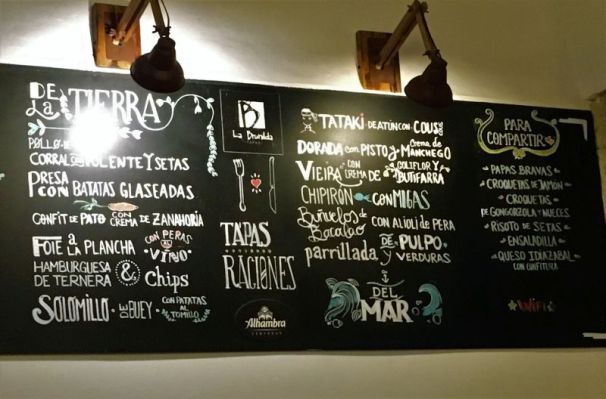 DE LA TIERRA
POLLO DE
CORRAL CON POLENTE Y SETAS
PRESA
CON BATATAS GLASEADAS
CONFIT DE PATO CON CREMA DE ZANAHORIA
FOIE A LA PLANCHA CON PERAS AL VINO
HAMBURGUESA
DE TERNERA & Chips
SOLOMILLO DE BUEY CON PATATAS AL TOMILLO
B
La Brunilda
TAPAS
TAPAS
Y
RACIONES
Alhambra
TATAKI DE ATÚN CON COUSCOUS
DORADA CON PISTO Y Crema de MANCHEGO
VIEIRA CON CREMA DE COLIFLOR Y BUTIFARRA
CHIPIRÓN CON MIGAS
Buñuelos de Bacalao CON ALIOLI DE PERA
parrillada DE PULPO Y VERDURAS
DEL
MAR
PARA
COMPARTIR
PAPAS BRAVAS
CROQUETAS DE JAMÓN
CROQUETAS
DE GONGORZOLA Y NUECES
RISOTO DE SETAS
ENSALADILLA
QUESO IDIAZABAL
CON CONFITURA
WiFi